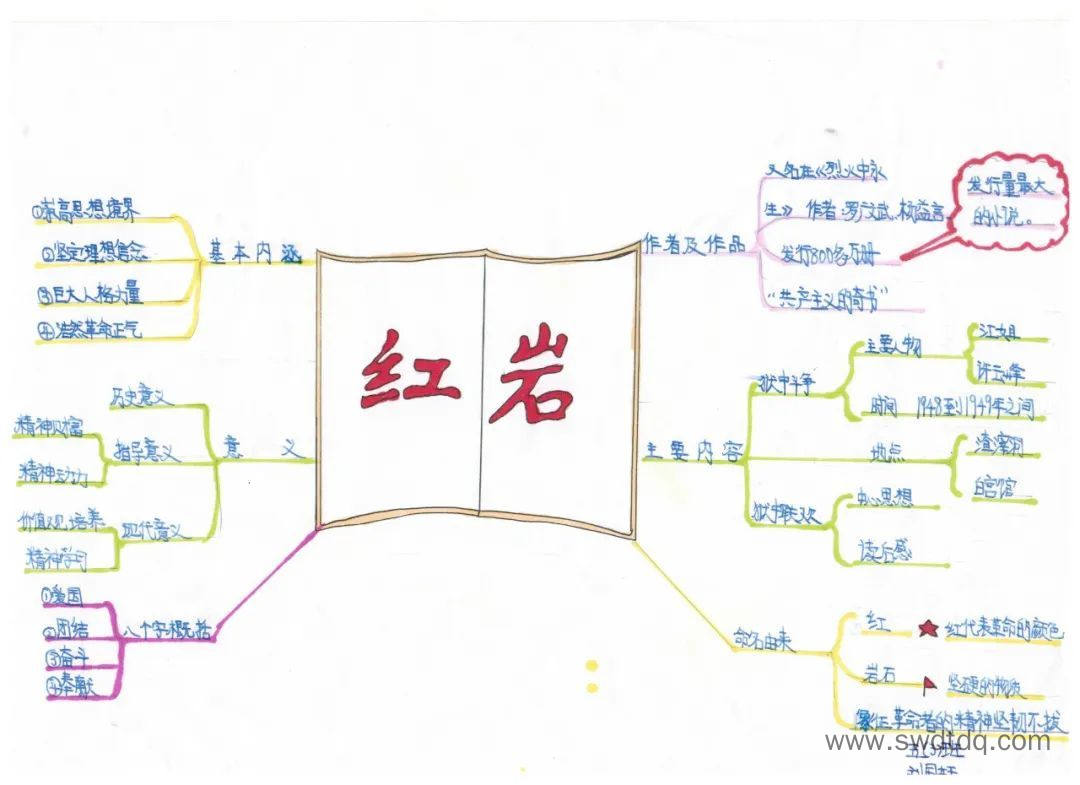 红岩
基本内涵
①崇高思想境界
②坚定理想信念
③巨大人格力量
④浩然革命正气
意义
历史意义
指导意义
精神财富
精神动力
现代意义
价值观培养
精神学习
八个字概括
①爱国
②团结
③奋斗
④奉献
作者及作品
又名在《烈火中永
生》 作者:罗广斌、杨益言
发行800多万册
发行量最大
的小说。
“共产主义的奇书”
主要内容
狱中斗争
主要人物
江姐
许云峰
时间 1948到1949年之间
地点
渣滓洞
白宫馆
狱中联欢
中心思想
读后感
命名由来
红
红代表革命的颜色
岩石
坚硬的物质
象征革命者的精神坚韧不拔
www.swdtdq.com